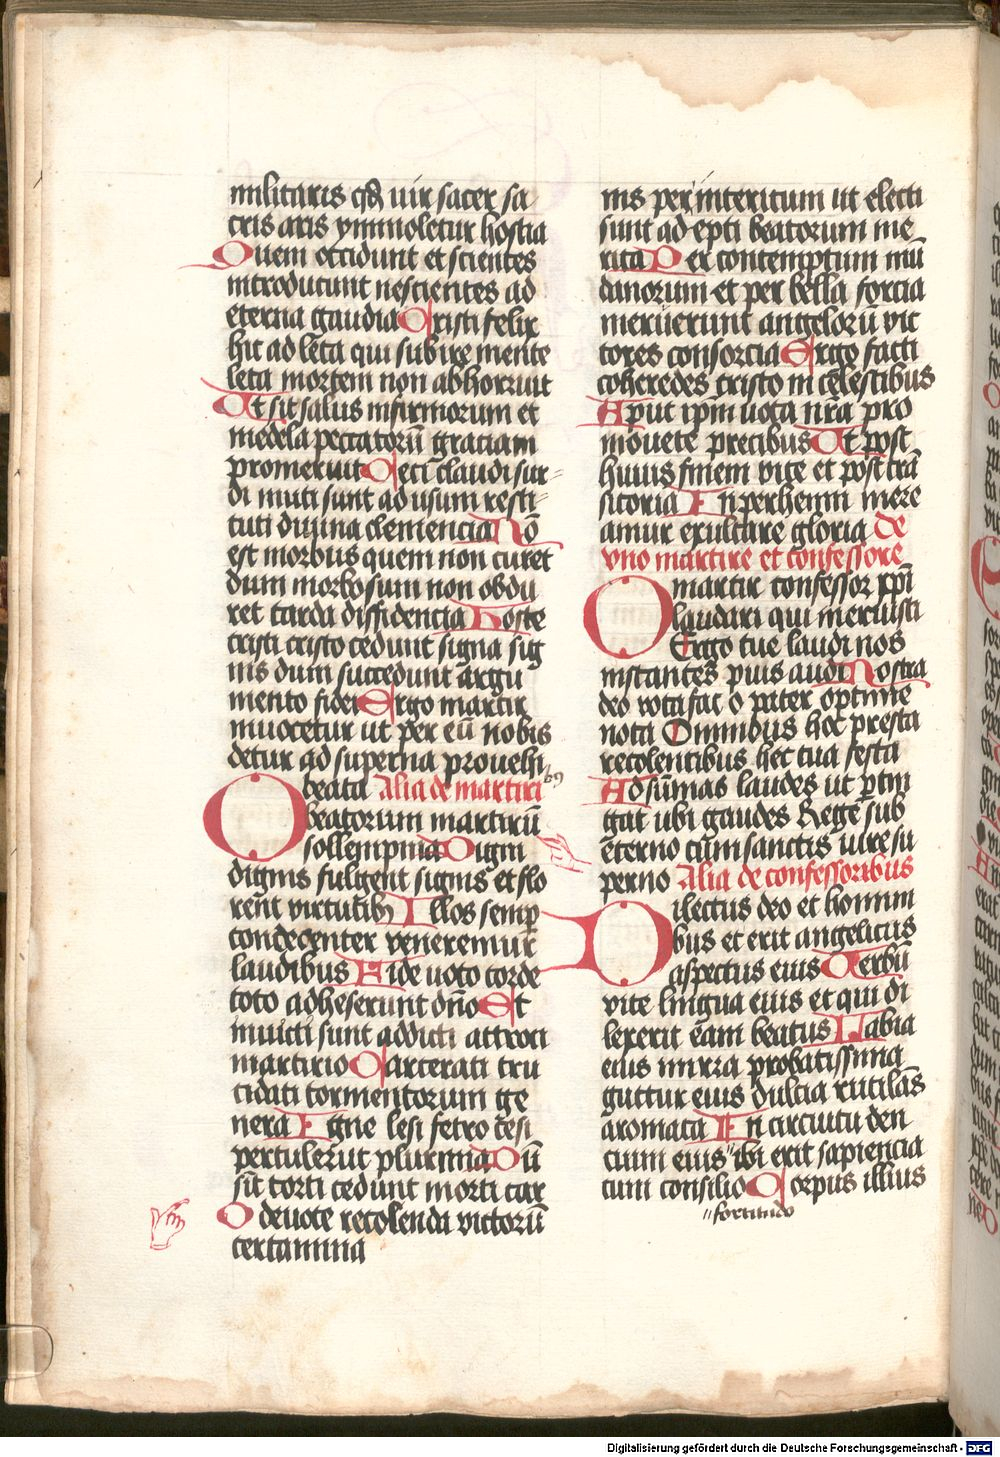 militaris qꝫ uir sacer sa
cris aris ymmoletur hostia
Quem occidunt et scientes
introducunt nescientes ad
eterna gaudia Cristi felix
hic adleta qui subire mente
leta mortem non abhorruit
Ut sit salus infirmorum et
medela peccatorū graciam
promeruit Ceci claudi sur
di muti sunt ad usum resti
tuti diuina clemencia Nō
est morbus quem non curet
dum morbosum non obdu
ret tarda diffidencia Hoste
cristi cristo cedunt signa sig
nis dum succedunt argu
mento fidei Ergo martir
inuocetur ut per eū nobis
detur ad superna prouehi
O beata Alia de martiri bꝰ
beatorum martirū
sollempnia Digni
dignis fulgent signis et flo
rent virtutibꝫ Illos semp
condecenter veneremur
laudibus Fide uoto corde
toto adheserunt dn̄o Et
inuicti sunt addicti attroci
martirio Carcerati tru
cidati tormentorum ge
nera Igne lesi ferro cesi
pertulerūt plurima Dū
sūt torti cedunt morti car
O deuote recolenda victorū
certamina
nis per interitum ut electi
sunt ad epti beatorum me
rita Per contemptum mū
danorum et per bella forcia
meruerunt angelorū vic
tores consorcia Ergo facti
coheredes cristo in celestibus
Aput ipm uota nr̄a pro
mouete precibus Ut post
huius finem vite et post trā
sitoria In perhenni mere
amur exultare gloria De
vno martire et confessore
O martir confessor xpi
laudari qui meruisti
Ergo tue laudi nos
instantes pius audi Nostra
deo vota fac o pater optime
nota Omnibus hoc presta
recolentibus hec tua festa
Ad sūmas laudes ut ꝑtin
gat ubi gaudes Rege sub
eterno cum sanctis iure su
perno Alia de confessoribus
Dilectus deo et homin
ibus et erit angelicus
aspectus eius Verbū
vite lingua eius et qui di
lexerit eam beatus Labia
eius mirra probatissima
guttur eius dulcia rutilās
aromata In circuitu den
cium eius ibi erit sapiencia
cum consilio Corpus illius
fortitudo